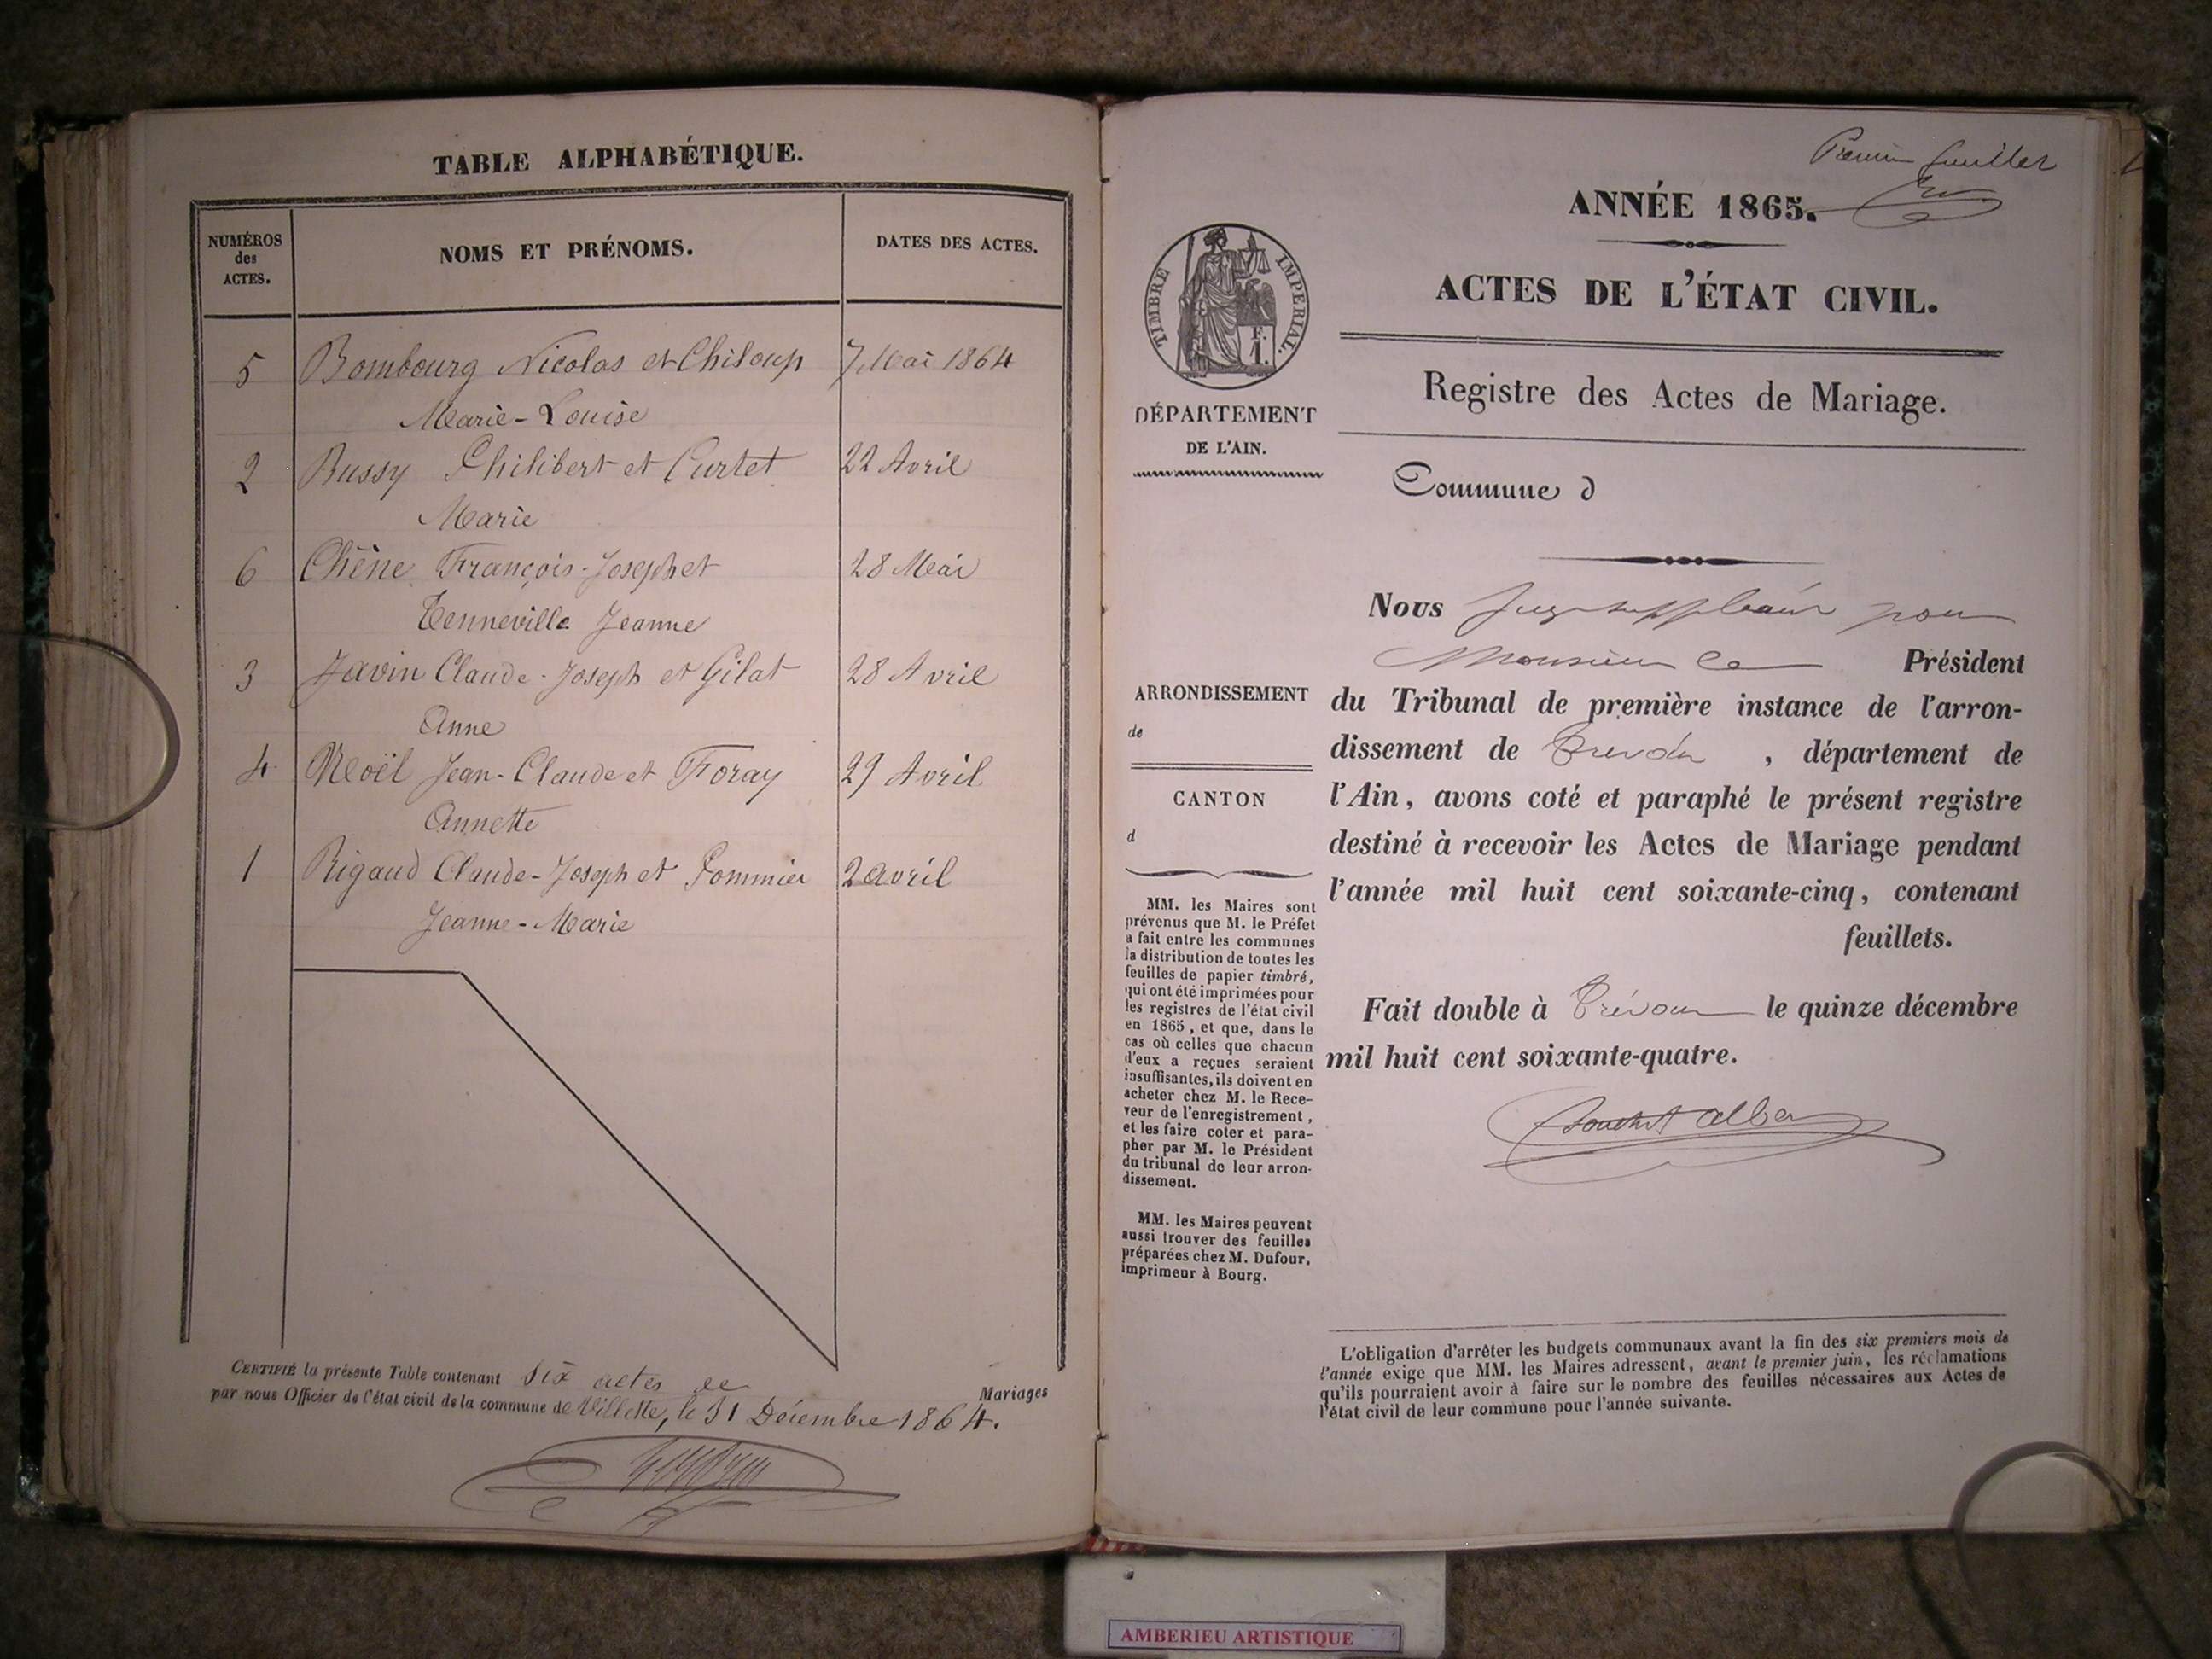 TABLE ALPHABÉTIQUE.
NUMÉROS
des
ACTES.
NOMS ET PRÉNOMS.
DATES DES ACTES.
5 Bombourg Nicolas et Chiloup 7 Mai 1864
Marie-Louise
2 Bussy Philibert et Curtet 22 Avril
Marie
6 Chêne François-Joseph et 28 Mai
Tenneville Jeanne
3 Javin Claude-Joseph et Gilat 28 Avril
Anne
4 Noël Jean-Claude et Foray 29 Avril
Annette
1 Rigaud Claude-Joseph et Pommier 2 avril
Jeanne-Marie
CERTIFIÉ la présente Table contenant six actes de Mariages
par nous Officier de l'état civil de la commune de Villette, le 31 Décembre 1864.
Premier feuillet
ANNÉE 1865.
ACTES DE L'ÉTAT CIVIL.
TIMBRE IMPERIAL.
F.
1.
Registre des Actes de Mariage.
DÉPARTEMENT
DE L'AIN.
Commune d
Nous Juge suppléant pour
Monsieur le Président
du Tribunal de première instance de l'arron-
dissement de Trévoux, département de
l'Ain, avons coté et paraphé le présent registre
destiné à recevoir les Actes de Mariage pendant
l'année mil huit cent soixante-cinq, contenant
feuillets.
Fait double à Trévoux le quinze décembre
mil huit cent soixante-quatre.
ARRONDISSEMENT
de
CANTON
d
MM. les Maires sont
prévenus que M. le Préfet
a fait entre les communes
la distribution de toutes les
feuilles de papier timbré,
qui ont été imprimées pour
les registres de l'état civil
en 1865, et que, dans le
cas où celles que chacun
d'eux a reçues seraient
insuffisantes, ils doivent en
acheter chez M. le Rece-
veur de l'enregistrement,
et les faire coter et para-
pher par M. le Président
du tribunal de leur arron-
dissement.
MM. les Maires peuvent
aussi trouver des feuilles
préparées chez M. Dufour,
imprimeur à Bourg.
L'obligation d'arrêter les budgets communaux avant la fin des six premiers mois de
l'année exige que MM. les Maires adressent, avant le premier juin, les réclamations
qu'ils pourraient avoir à faire sur le nombre des feuilles nécessaires aux Actes de
l'état civil de leur commune pour l'année suivante.
AMBERIEU ARTISTIQUE